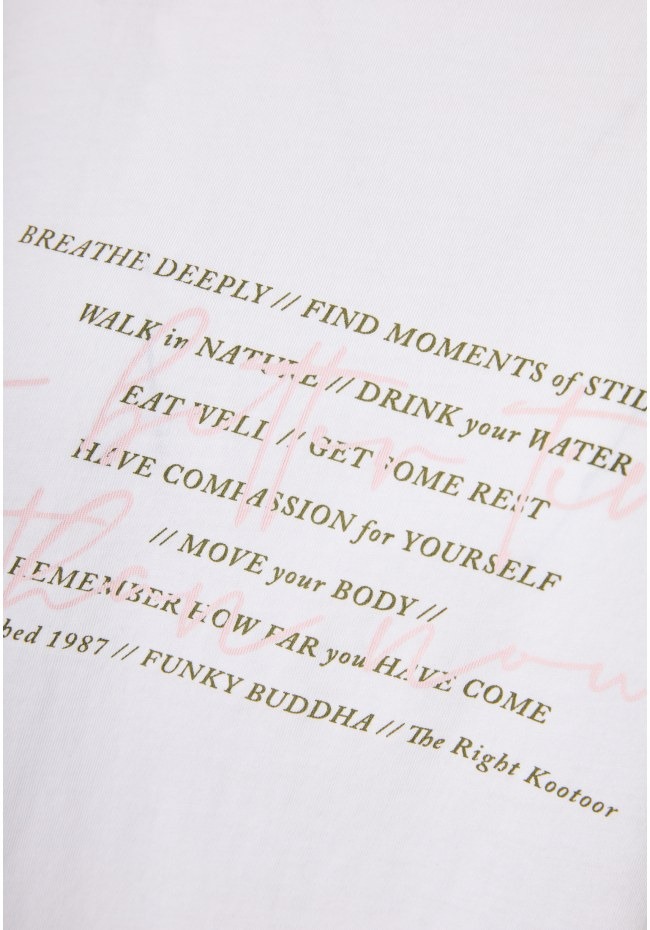 BREATHE DEEPLY // FIND MOMENTS of STIL
WALK in NATURE // DRINK your WATER
EAT WELL // GET SOME REST
HAVE COMPASSION for YOURSELF
// MOVE your BODY //
REMEMBER HOW FAR you HAVE COME
hed 1987 // FUNKY BUDDHA // The Right Kootoor
better
than now